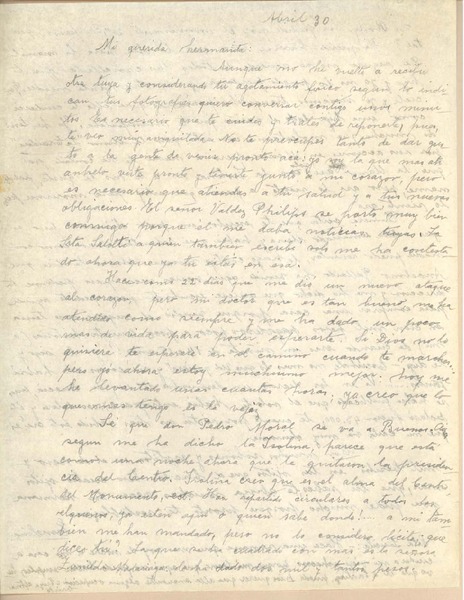 Abril 30
Mi querida hermanita:
Aunque no he vuelto a recibir
otra tuya y considerando tu agotamiento físico según lo indi
can tus fotografías quiero conversar contigo unos minu
tos. Es necesario que te cuides y trates de reponerte, pues
te veo muy arruinada. No te preocupes tanto de dar gus
to a la gente de verse pronto acá; yo es lo que más
anhelo, verte pronto y tenerte junto a mi corazón, pero
es necesario que atiendas a tu salud y a tus nuevas
obligaciones. El señor Valdez Philips se portó muy bien
conmigo porque él me daba noticias tuyas. La
Srta a quien también escribí sólo me ha contesta
do ahora que ya tú estás en esa.
Hace como 22 días que me dió un nuevo ataque
al corazón, pero mi doctor que es tan bueno, me ha
atendido como siempre y me ha dado un poco
mas de vida para poder esperarte. Si Dios no lo
quisiere te esperaré en el camino cuando te marches.
pero yo ahora estoy muchísimo mejor. hoy me
he levantado unas cuantas horas. ya creo que lo
que tengo es de vieja.
Sé que don Pedro Moral se va a Buenos
según me ha dicho la Isolina, parece que está
como una noche ahora que le quitaron la presiden
cia del Centro. Isolina creo que es el alma del Centro
del Monumento, etc. Han repartido circulares a todos los
algueros, ya estén aquí o quien sabe donde!... a mí tam
bién me han mandado, pero no lo considero lícito; que
con más es la señora
ha dado dos mil y tantos pesos.